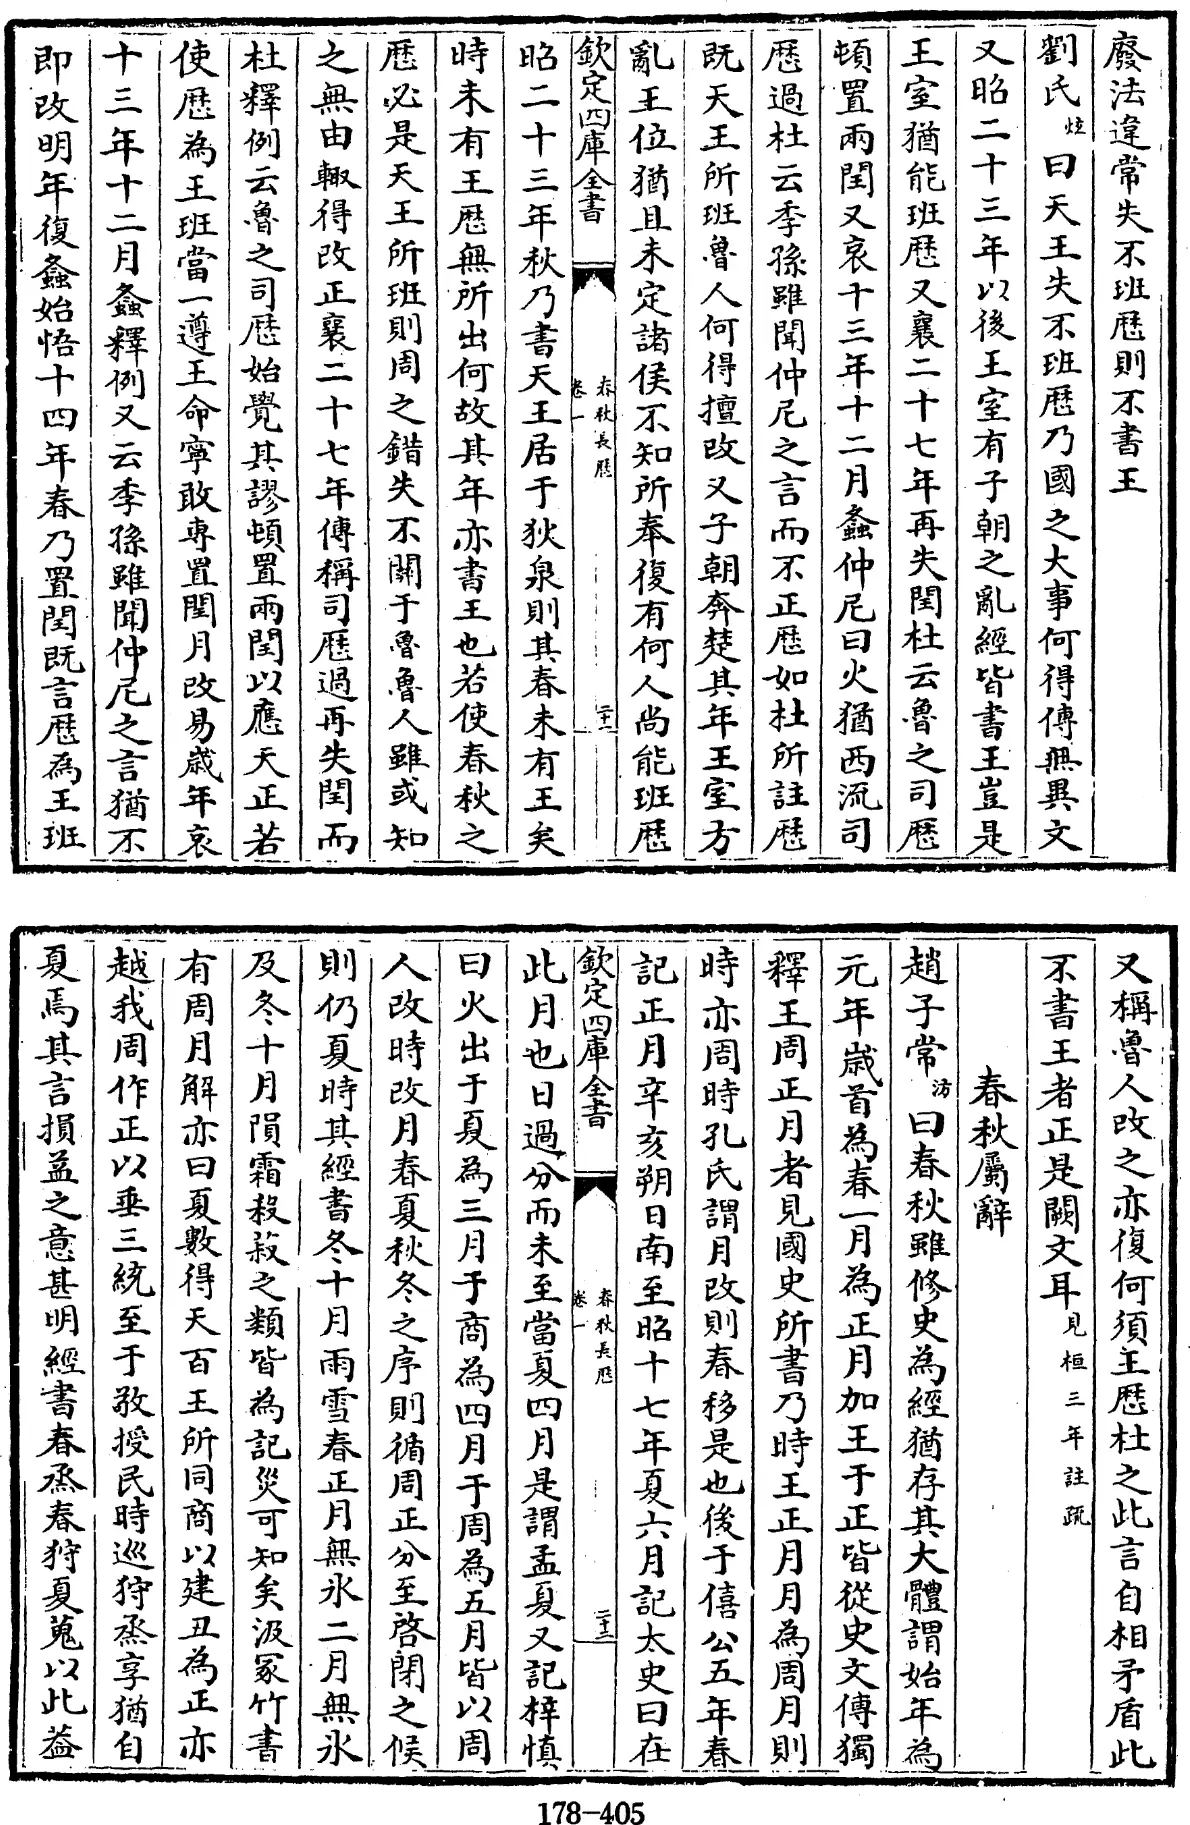 廢法違常失不班厯則不書王
劉氏炫曰天王失不班厯乃國之大事何得傳無異文
又昭二十三年以後王室有子朝之亂經皆書王豈是
王室猶能班厯又襄二十七年再失閏杜云魯之司厯
頓置兩閏又哀十三年十二月螽仲尼曰火猶西流司
厯過杜云季孫雖聞仲尼之言而不正厯如杜所註厯
既天王所班魯人何得擅改又子朝奔楚其年王室方
亂王位猶且未定諸侯不知所奉復有何人尚能班厯
欽定四庫全書
春秋長厯
卷一
二十二
昭二十三年秋乃書天王居于狄泉則其春未有王矣
時未有王厯無所出何故其年亦書王也若使春秋之
厯必是天王所班則周之錯失不關于魯魯人雖或知
之無由輙得改正襄二十七年傳稱司厯過再失閏而
杜釋例云魯之司厯始覺其謬頓置兩閏以應天正若
使厯為王班當一遵王命寧敢専置閏月改易嵗年哀
十三年十二月螽釋例又云季孫雖聞仲尼之言猶不
即改明年復螽始悟十四年春乃置閏既言厯為王班
又稱魯人改之亦復何須王厯杜之此言自相矛盾此
不書王者正是闕文耳見桓三年註疏
春秋屬辭
趙子常汸曰春秋雖修史為經猶存其大體謂始年為
元年嵗首為春一月為正月加王于正皆從史文傳獨
釋王周正月者見國史所書乃時王正月月為周月則
時亦周時孔氏謂月改則春移是也後于僖公五年春
記正月辛亥朔日南至昭十七年夏六月記太史曰在
欽定四庫全書
春秋長厯
卷一
二十三
此月也日過分而未至當夏四月是謂孟夏又記梓慎
曰火出于夏為三月于商為四月于周為五月皆以周
人改時改月春夏秋冬之序則循周正分至啓閉之候
則仍夏時其經書冬十月雨雪春正月無氷二月無氷
及冬十月隕霜殺菽之類皆為記災可知矣汲冢竹書
有周月解亦曰夏數得天百王所同商以建丑為正亦
越我周作正以垂三統至于敬授民時巡狩烝享猶自
夏焉其言損益之意甚明經書春烝春狩夏蒐以此葢
178-405